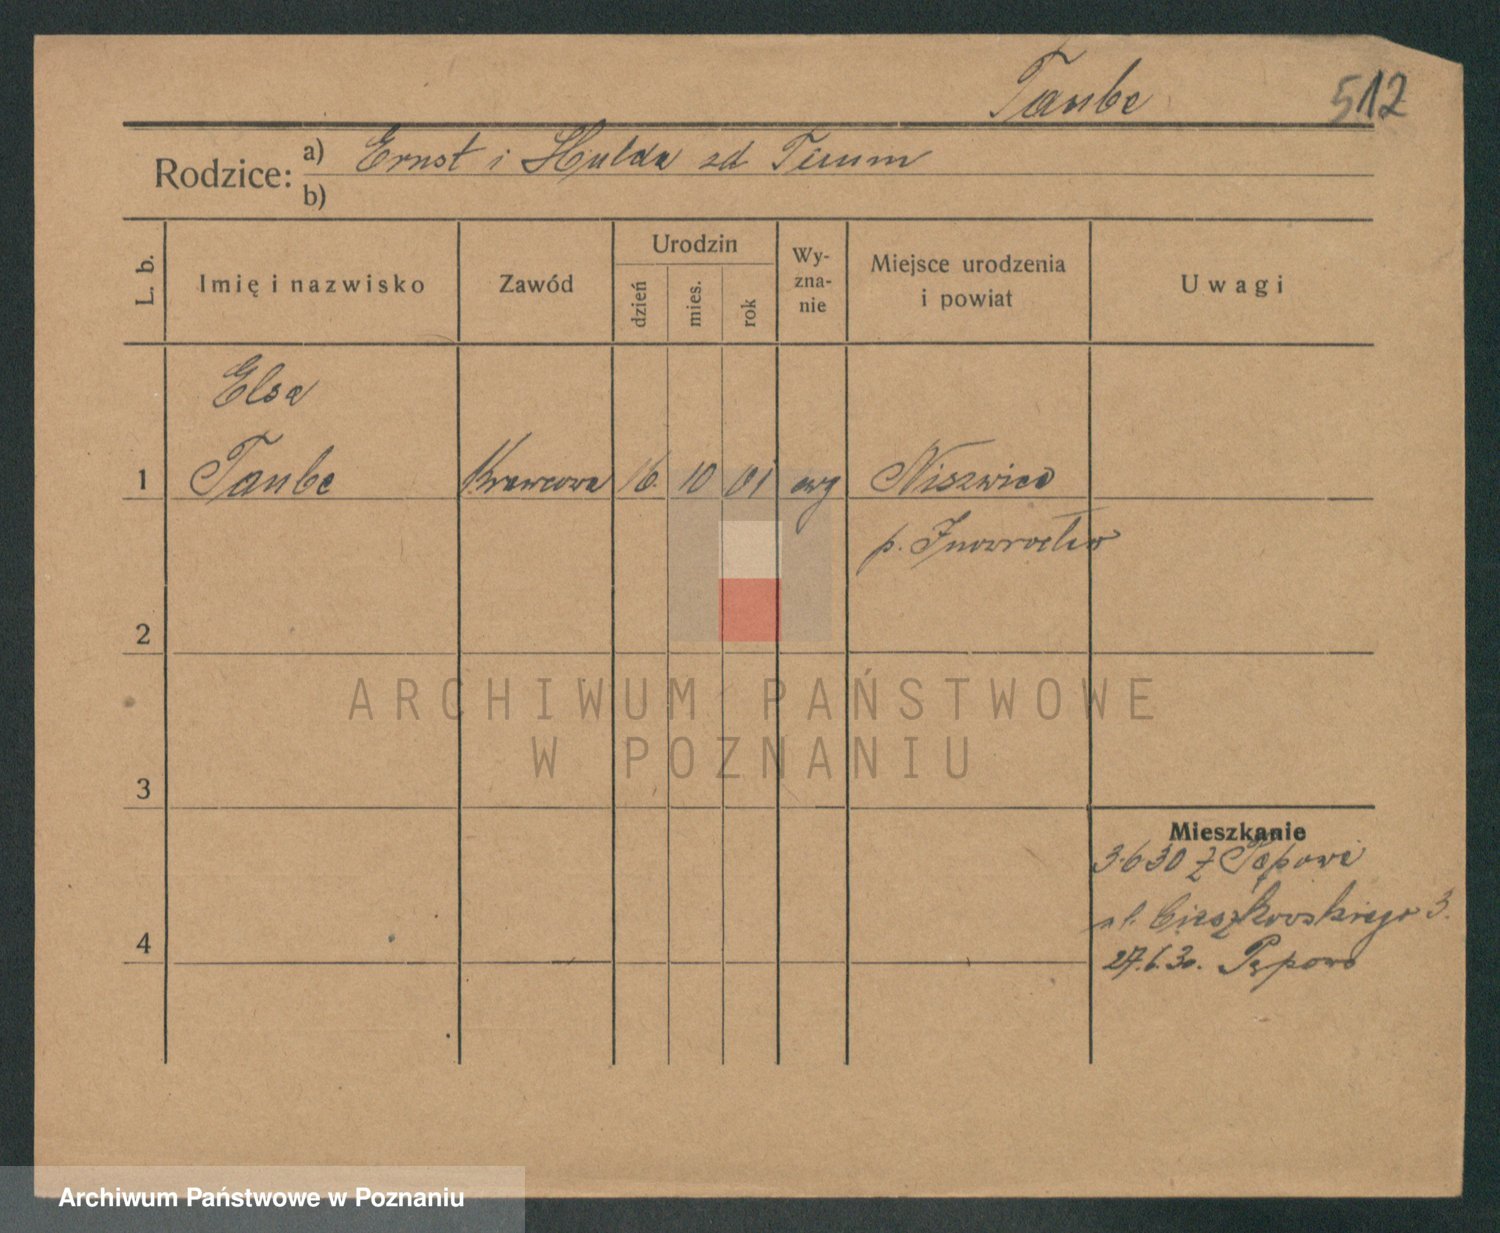 Taube 512
Rodzice: a) Ernst i Hulda zd
b)
L. b. Imię i nazwisko Zawód Urodzin dzień mies. rok Wy-zna-nie Miejsce urodzenia i powiat Uwagi
Elsa
1 Taube Krawcowa 16. 10 01 ewg Niszwice
p. Inowrocław
2
ARCHIWUM PAŃSTWOWE
W POZNANIU
3
Mieszkanie
3.6 30 z Pępowa
ul. Cieszkowskiego 3.
4 27.6.30. Pępowo
Archiwum Państwowe w Poznaniu